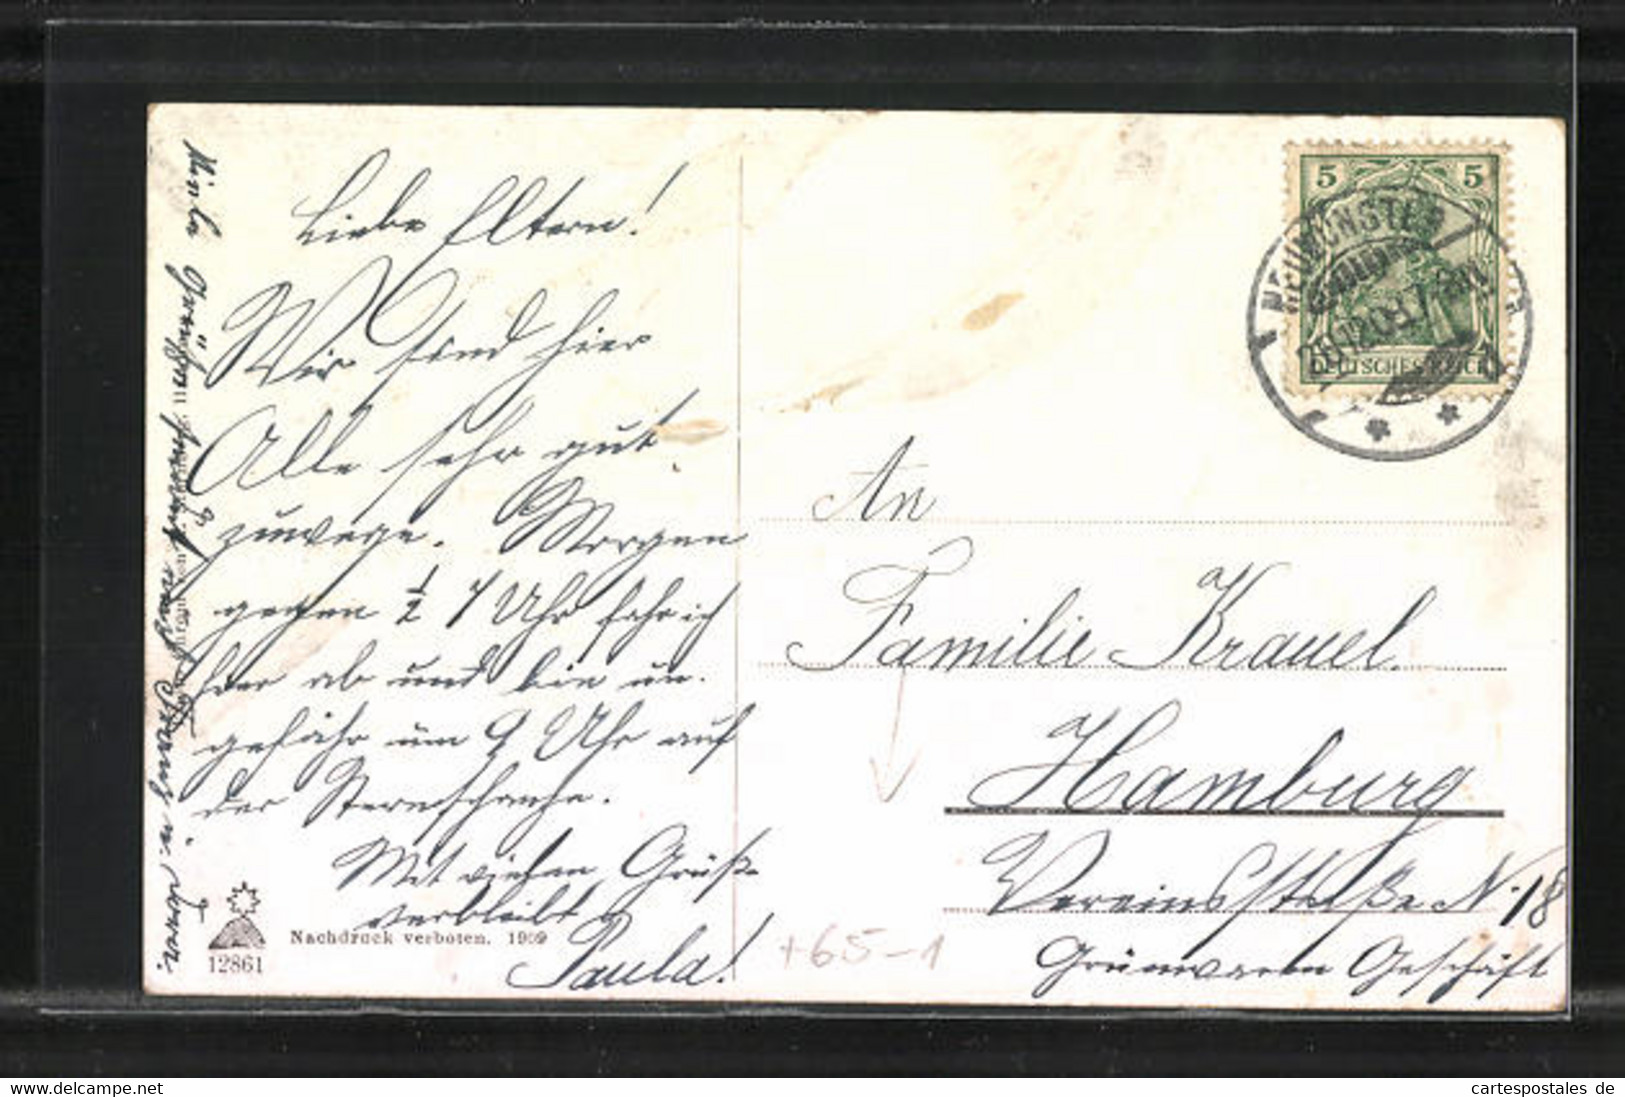 Liebe Eltern!
Wir sind hier
Alle sehr gut
zuwege. Morgen
gegen ½ 7 Uhr fahr ich
hier ab und bin un.
gefähr um 9 Uhr auf
der Sternschanze.
Mit vielen Grüß.
verbleibt
Paula!
Viele Grüßen noch von
Nachdruck verboten. 1909
12861
5 5
NEUMÜNSTER
DEUTSCHES REICH
An
Familie Krauel.
Hamburg
Vereinsstraße N. 18
Grünwaren Geschäft
+65-1
cartespostales de